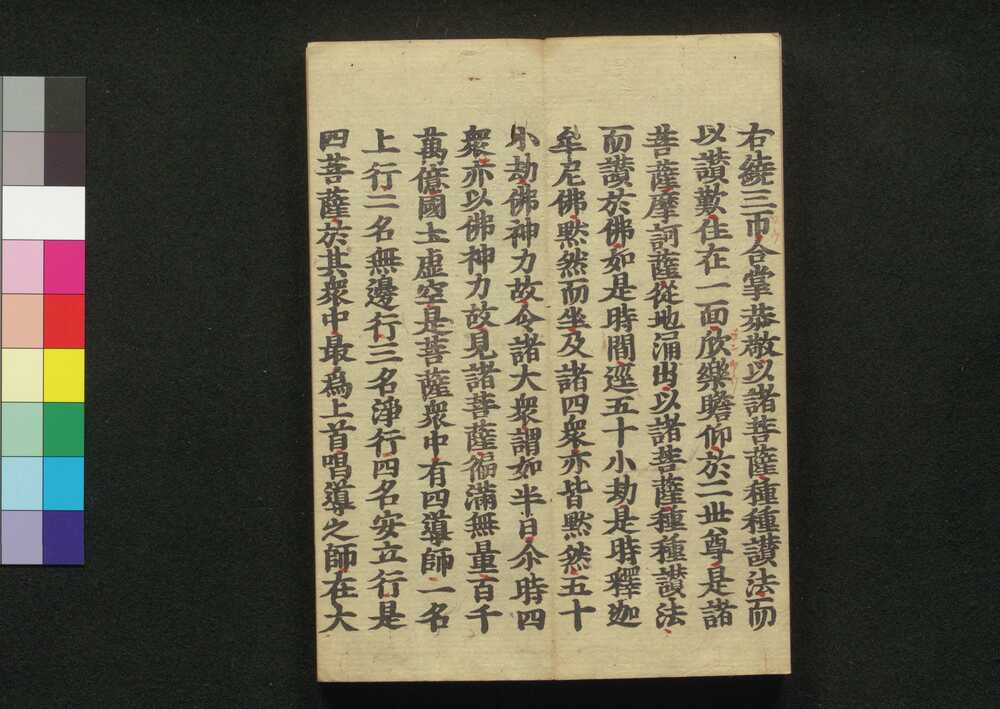 右繞三帀合掌恭敬以諸菩薩種種讃法而
以讃歎住在一面欣樂瞻仰於二世尊是諸
菩薩摩訶薩從地涌出以諸菩薩種種讃法
而讃於佛如是時間逕五十小劫是時釋迦
牟尼佛黙然而坐及諸四衆亦皆黙然五十
小劫佛神力故令諸大衆謂如半日尒時四
衆亦以佛神力故見諸菩薩徧滿無量百千
萬億國土虚空是菩薩衆中有四導師一名
上行二名無邊行三名淨行四名安立行是
四菩薩於其衆中最爲上首唱導之師在大